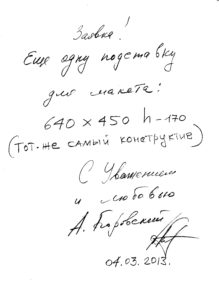 Заявка!
Еще одну подставку
для макета:
640 × 450 h-170
(тот-же самый конструктив)
С Уважением
и любовью
А.
04.03.2013.